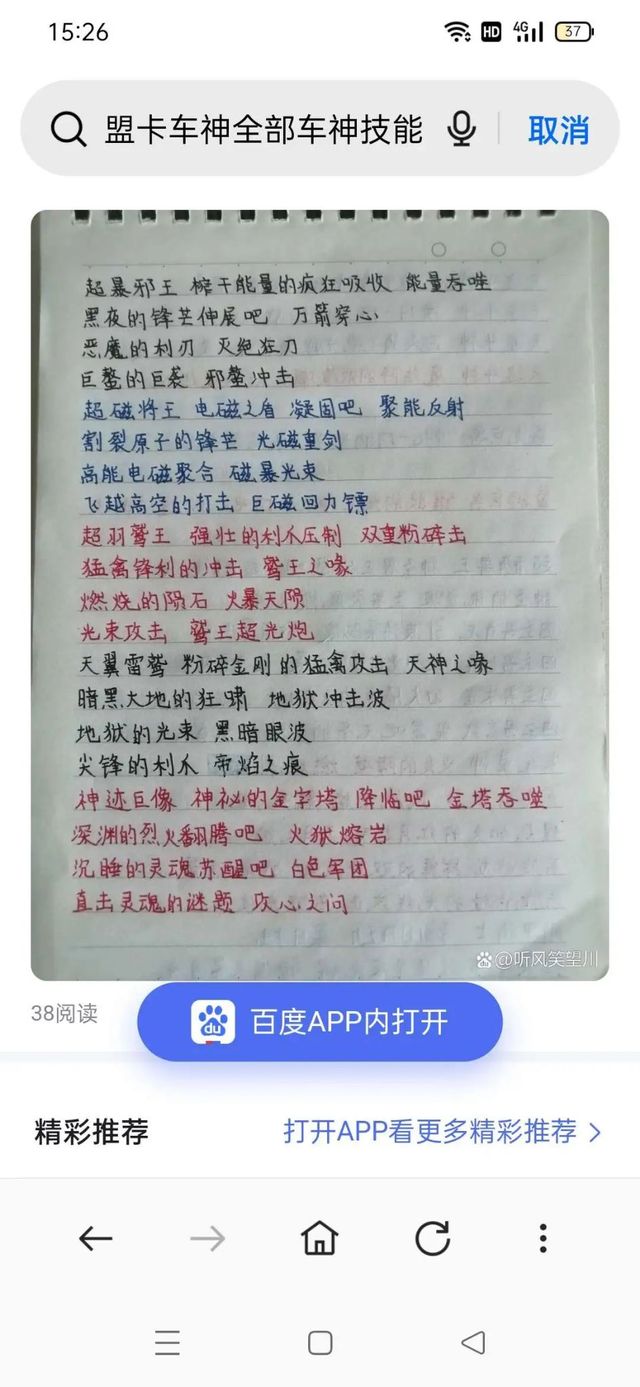 15:26
HD 4G 37
盟卡车神全部车神技能 取消
超暴邪王 榨干能量的疯狂吸收 能量吞噬
黑夜的锋芒伸展吧 万箭穿心
恶魔的利刃 灭绝狂刀
巨螯的巨袭 邪螯冲击
超磁将王 电磁之盾 凝固吧 聚能反射
割裂原子的锋芒 光磁重剑
高能电磁聚合 磁暴光束
飞越高空的打击 巨磁回力镖
超羽鹫王 强壮的利爪压制 双重粉碎击
猛禽锋利的冲击 鹫王之喙
燃烧的陨石 火暴天陨
光束攻击 鹫王超光炮
天翼雷鹫 粉碎金刚的猛禽攻击 天神之喙
暗黑大地的狂啸 地狱冲击波
地狱的光束 黑暗眼波
尖锋的利爪 帝焰之痕
神迹巨像 神祕的金字塔 降临吧 金塔吞噬
深渊的烈火翻腾吧 火狱熔岩
沉睡的灵魂苏醒吧 白色军团
直击灵魂的谜题 攻心之问
du @听风笑望川
38阅读
du 百度APP内打开
精彩推荐 打开APP看更多精彩推荐